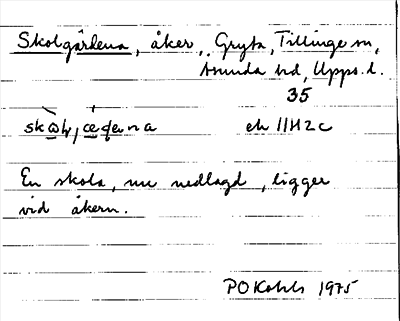 Skolgärdena, åker, Gryta, Tillinge sn,
Åsunda hd, Upps. l.
35
ek 11H2c
En skola, nu nedlagd, ligger
vid åkern.
PO 1975